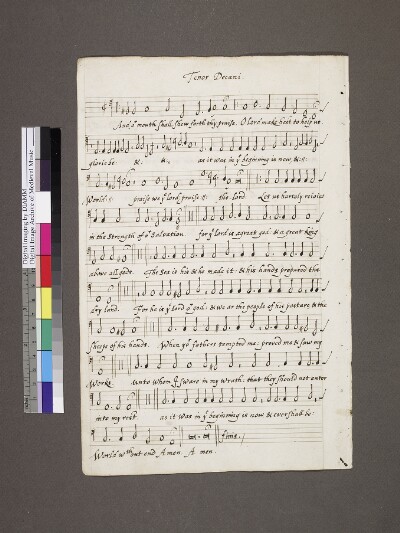 Tenor Decani
And oʳ mouth shall shew forth thy praise. O Lord make hast to help us.
glorie be &. &. as it was in yᵉ beginning is now, & c.
World: &. praise we yᵉ lord praise &. the lord. Let us hartely rejoice
in the strength of oʳ Salvation for yᵉ lord is a great god: & a great king
above all gods. The Sea is his & he made it: & his hands prepared the
dry land. For he is yᵉ lord oʳ god: & we ar the people of his pasture & the
sheepe of his hands. When yoʳ fathers tempted me: proved me & saw my
Works. unto whom I sware in my wrath: that they should not enter
into my rest. as it was in yᵉ beginning is now & ever shall be:
finis.
World wᵗʰout end Amen. A men.
Digital Imaging by DIAMM
Digital Image Archive of Medieval Music